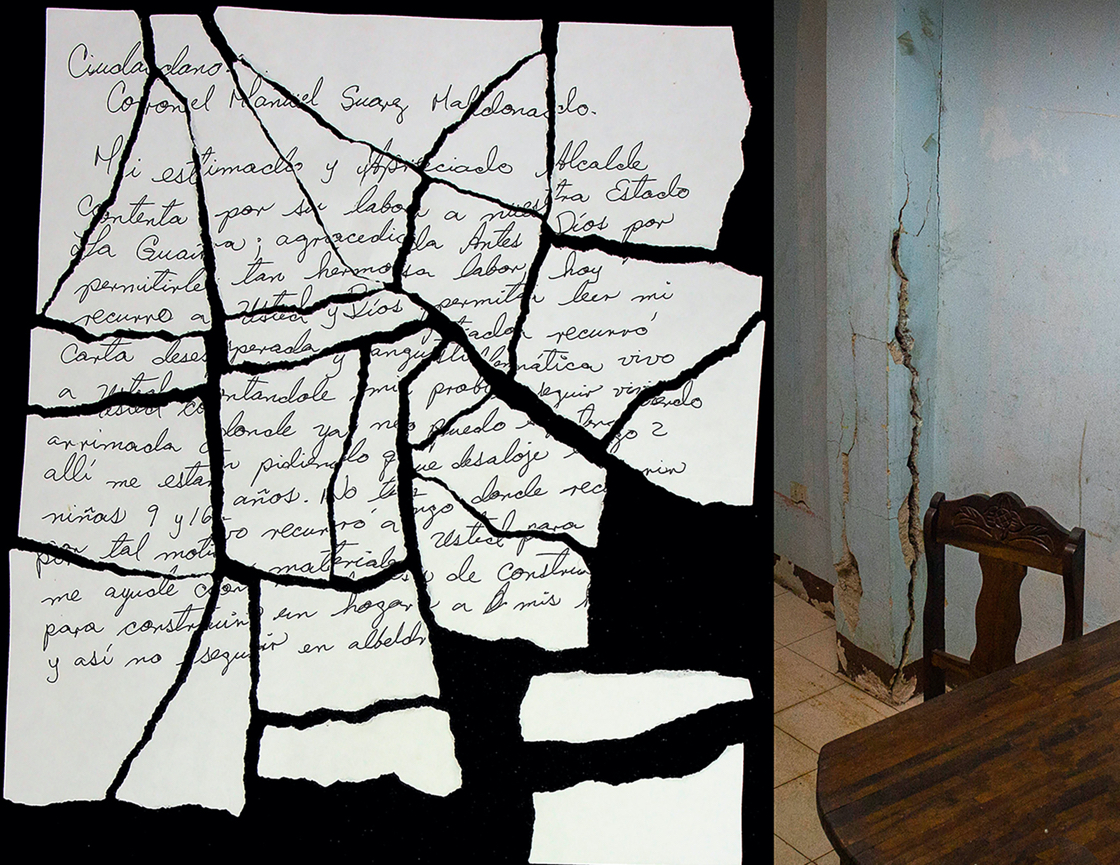 Ciudadano:
Coronel Manuel Suarez Maldonado.
Mi estimado y Apreciado Alcalde
Contenta por su labor a nuestra Estado
La Guaira; agriacedida Antes Dios por
permitirle tan hermosa labor, hoy
recurro a Usted y Dios permita leer mi
Carta desesperada y recurró
a Usted contandole mi problemática vivo
arrimada donde ya no puedo seguir viviendo
allí me estan pidiendo que desaloje tengo 2
niñas 9 y 16 años. No tengo donde
por tal motivo recurró a Usted para
me ayude con materiales de
para construir en hogar a mis
y así no seguir en